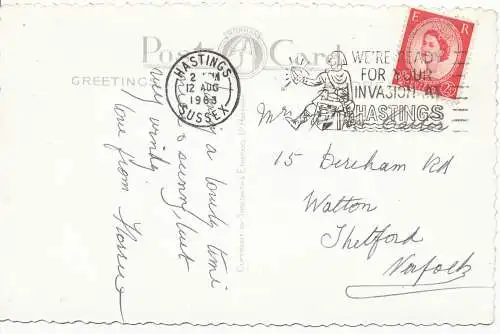 Post Card
GREETING
HASTINGS
2 PM
12 AUG
1963
SUSSEX
E R
WE'RE READY
FOR YOUR
INVASION AT
HASTINGS
Mrs Carter
15 Dereham Rd
Watton
Thetford
Norfolk
a lovely time
& sunny, but
very windy
love from Florrie